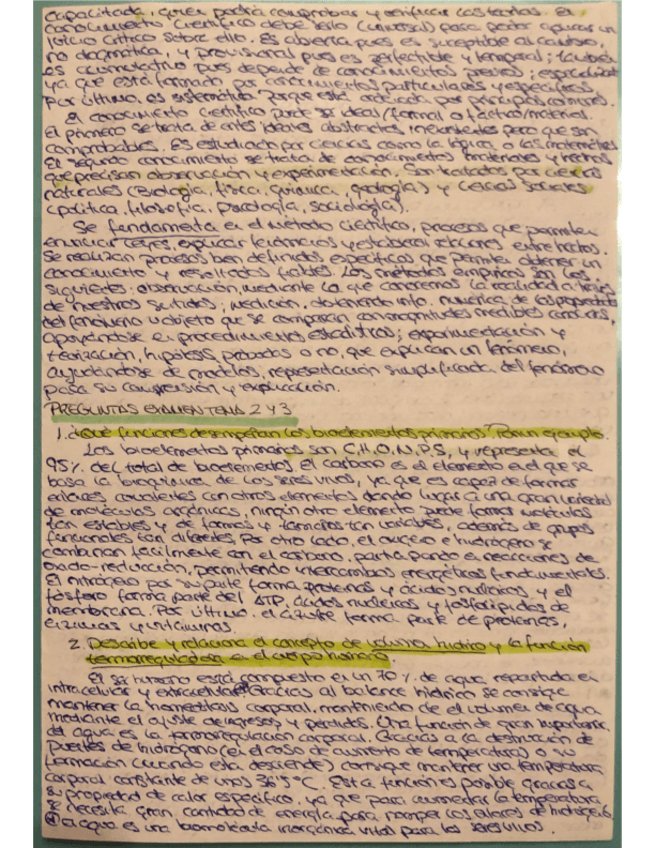 capacitada, quien podría comprobar y verificar las teorías. El
conocimiento científico debe serlo (universal) para poder aplicar un
juicio crítico sobre ello. Es abierta pues es susceptible al cambio,
no dogmática, y provisional pues es perfectible y temporal; también
es acumulativo pues depende de conocimientos previos; especializada
ya que está formado por conocimientos particulares y específicos.
Por último, es sistemática porque está ordenada por principios comunes.
El conocimiento científico puede ser ideal/formal o fáctico/material.
El primero se trata de entes ideales abstractos inexistentes pero que son
comprobables. Es estudiado por ciencias como la lógica o las matemáticas.
El segundo conocimiento se trata de conocimientos materiales y hechos
que precisan observación y experimentación. Son tratados por ciencias
naturales (Biología, física, química, geología) y ciencias sociales
(política, filosofía, psicología, sociología).
Se fundamenta en el método científico, procesos que permiten
enunciar leyes, explicar fenómenos y establecer relaciones entre hechos.
Se realizan procesos bien definidos específicos que permite obtener un
conocimiento y resultados fiables. Los métodos empíricos son los
siguientes: observación, mediante la que conocemos la realidad a través
de nuestros sentidos; medición, obteniendo info. numérica de las propiedades
del fenómeno u objeto que se comparan con magnitudes medibles conocidas,
apoyándose en procedimientos estadísticos; experimentación y
teorización, hipótesis probadas o no, que explican un fenómeno,
ayudándose de modelos, representación simplificada del fenómeno
para su comprensión y explicación.
PREGUNTAS EXAMEN TEMA 2 Y 3
1. ¿Qué funciones desempeñan los bioelementos primarios? Pon un ejemplo.
Los bioelementos primarios son C, H, O, N, P, S, y representa el
95% del total de bioelementos. El carbono es el elemento en el que se
basa la bioquímica de los seres vivos, ya que es capaz de formar
enlaces covalentes con otros elementos dando lugar a una gran variedad
de moléculas orgánicas, ningún otro elemento puede formar moléculas
tan estables y de formas y tamaños tan variables, además de grupos
funcionales tan diferentes. Por otro lado, el oxígeno e hidrógeno se
combinan fácilmente con el carbono, participando en reacciones de
oxido-reducción, permitiendo intercambios energéticos fundamentales.
El nitrógeno por su parte forma proteínas y ácidos nucleicos, y el
fósforo forma parte del ATP, ácidos nucleicos y fosfolípidos de
membrana. Por último, el azufre forma parte de proteínas,
enzimas y vitaminas.
2. Describe y relaciona el concepto de volumen hídrico y la función
termorreguladora en el cuerpo humano.
El ser humano está compuesto en un 70% de agua, repartida en
intracelular y extracelular. Gracias al balance hídrico se consigue
mantener la homeostasis corporal, mantiniendo de el volumen de agua
mediante el ajuste de ingresos y pérdidas. Una función de gran importancia
del agua es la termorregulación corporal. Gracias a la destrucción de
puentes de hidrógeno (en el caso de aumento de temperatura) o su
formación (cuando esta desciende) consigue mantener una temperatura
corporal constante de unos 36'5°C. Esta función es posible gracias a
su propiedad de calor específico, ya que para aumentar la temperatura
se necesita gran cantidad de energía para romper los enlaces de hidrógeno.
el agua es una biomolécula inorgánica vital para los seres vivos.